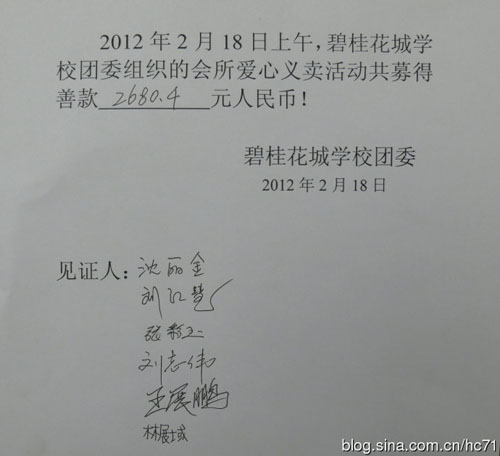 2012 年 2 月 18 日上午，碧桂花城学
校团委组织的会所爱心义卖活动共募得
善款 2680.4 元人民币！
碧桂花城学校团委
2012 年 2 月 18 日
见证人：沈丽金
刘红慧
张
刘志伟
王展鹏
林展域
blog.sina.com.cn/hc71